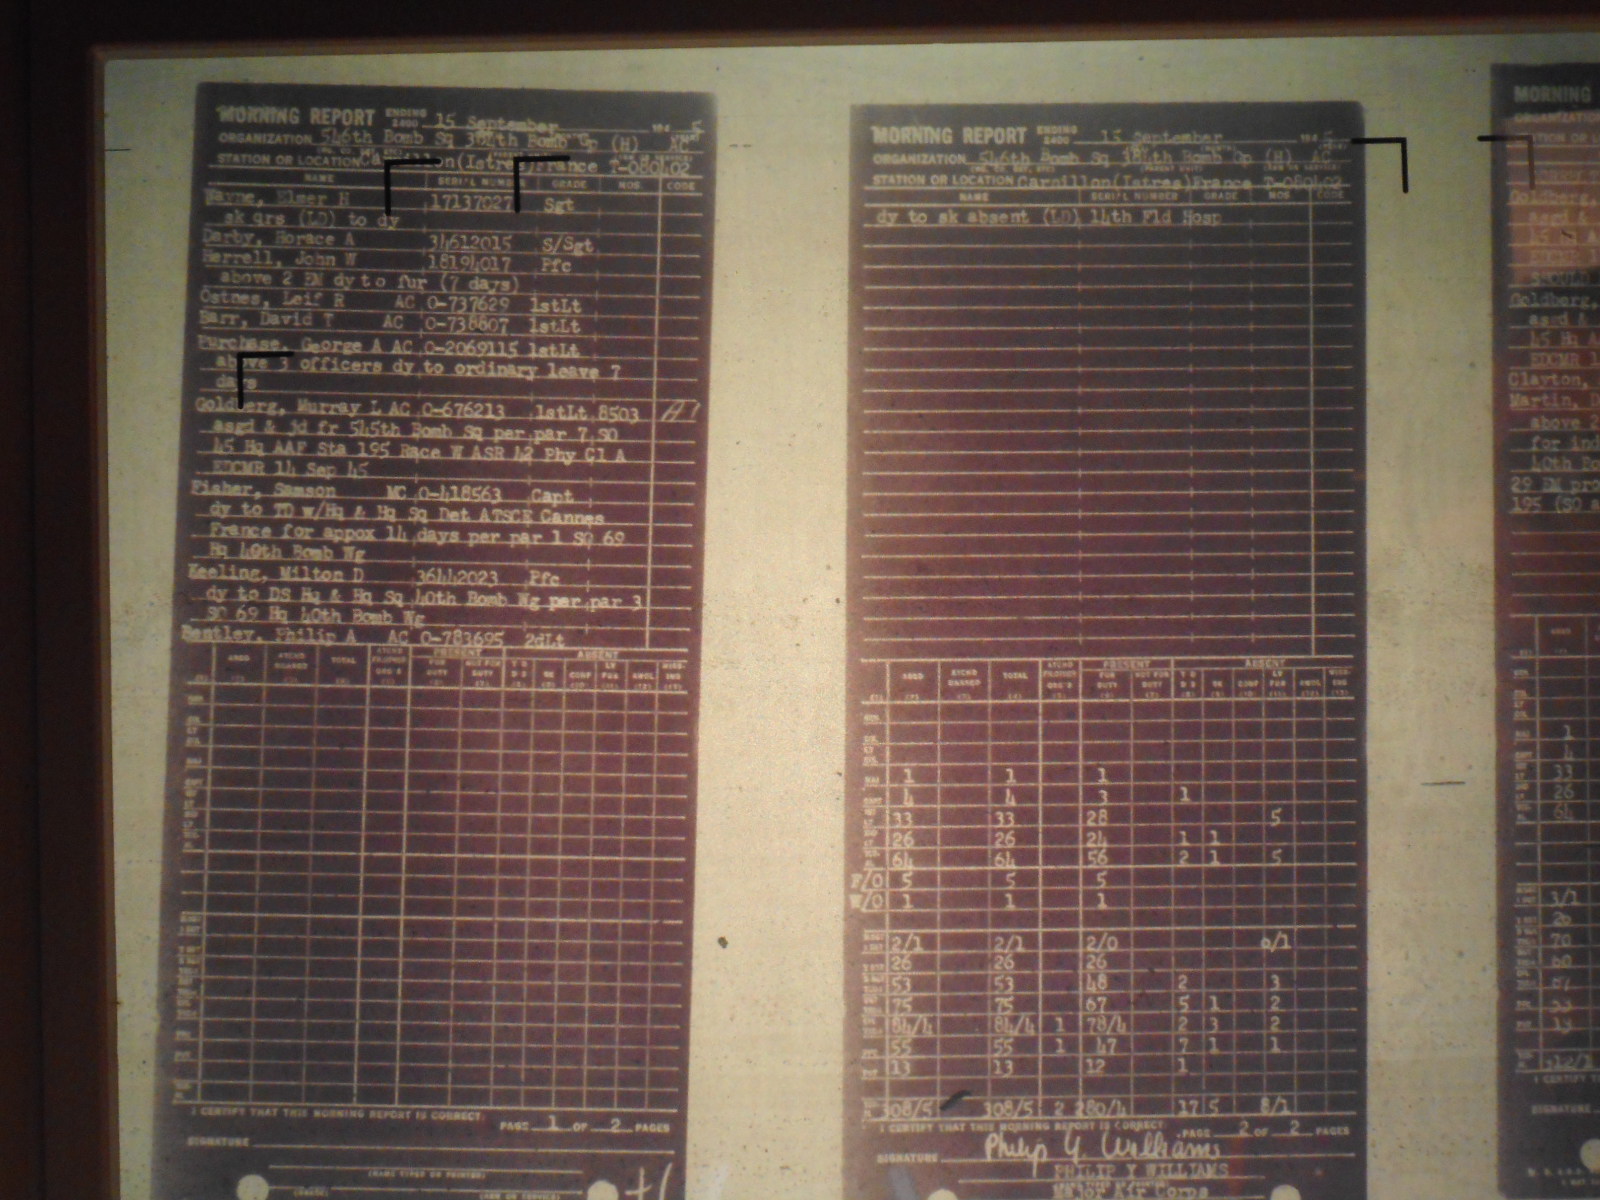 MORNING REPORT ENDING 2400 15 September 194 5
ORGANIZATION 546th Bomb Sq 384th Bomb Gp (H) AC
STATION OR LOCATION (Istres)France T-080402
NAME SERIAL NUMBER GRADE MOS. CODE
Wayne, Elmer H 17137027 Sgt
sk qrs (LD) to dy
Darby, Horace A 34612015 S/Sgt
Herrell, John W 18194017 Pfc
above 2 EM dy to fur (7 days)
Ostnes, Leif R AC O-737629 1stLt
Barr, David T AC O-738807 1stLt
Purchase, George A AC O-2069115 1stLt
above 3 officers dy to ordinary leave 7
days
Goldberg, Murray L AC O-676213 1stLt 8503
asgd & jd fr 545th Bomb Sq per par 7 SO
45 Hq AAF Sta 195 Race W ASR 42 Phy Cl A
EDCMR 14 Sep 45
Fisher, Samson MC O-418563 Capt
dy to TD w/Hq & Hq Sq Det ATSCE Cannes
France for appox 14 days per par 1 SO 69
Hq 40th Bomb Wg
Keeling, Milton D 36442023 Pfc
dy to DS Hq & Hq Sq 40th Bomb Wg per par 3
SO 69 Hq 40th Bomb Wg
Bentley, Philip A AC O-783695 2dLt
PRESENT ABSENT
ASGD TOTAL FOR DUTY NOT FOR DUTY T D D S SK CONF LV FUR AWOL
I CERTIFY THAT THIS MORNING REPORT IS CORRECT:
PAGE 1 OF 2 PAGES
SIGNATURE
(NAME TYPED OR PRINTED)
MORNING REPORT ENDING 2400 15 September 194 5
ORGANIZATION 546th Bomb Sq 384th Bomb Gp (H) AC
STATION OR LOCATION Carnillon(Istres)France T-080402
NAME SERIAL NUMBER GRADE MOS CODE
dy to sk absent (LD) 14th Fld Hosp
PRESENT ABSENT
ASGD TOTAL FOR DUTY NOT FOR DUTY T D D S SK CONF LV FUR AWOL
MAJ 1 1 1
CAPT 4 4 3 1
33 33 28 5
26 26 24 1 1
64 64 56 2 1 5
F/O 5 5 5
W/O 1 1 1
2/1 2/1 2/0 0/1
26 26 26
53 53 48 2 3
75 75 67 5 1 2
84/4 84/4 1 78/4 2 3 2
55 55 1 47 7 1 1
13 13 12 1
308/5 308/5 2 280/4 17 5 8/1
I CERTIFY THAT THIS MORNING REPORT IS CORRECT:
PAGE 2 OF 2 PAGES
SIGNATURE Philip Y. Williams
PHILIP Y WILLIAMS
Major Air Corps
MORNING
Goldberg,
asgd &
SHOULD
Goldberg,
asgd &
45 Hq
EDCMR
Clayton,
Martin,
above 2
for
40th
29 EM
195
1
4
33
26
64
3/1
70
SIGNATURE